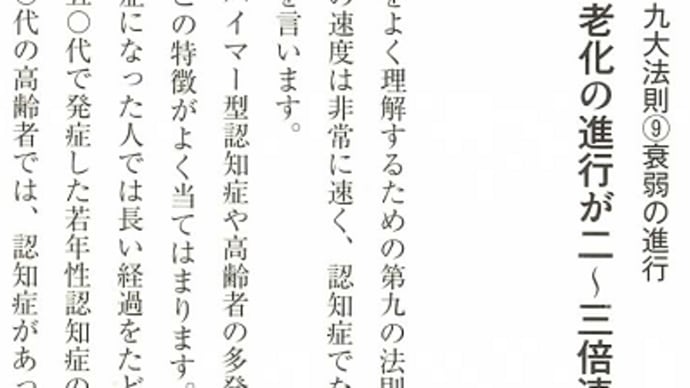 九大法則⑨衰弱の進行
老化の進行が二〜三倍速
をよく理解するための第九の法則
の速度は非常に速く、認知症でな
を言います。
ハイマー型認知症や高齢者の多発
この特徴がよく当てはまります。
症になった人では長い経過をたど
五〇代で発症した若年性認知症の
〇代の高齢者では、認知症があっ